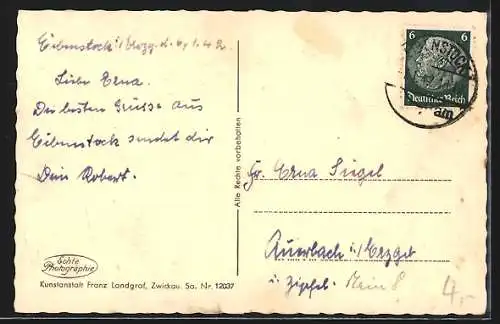 Eibenstock i/Erzg. d. 6/1.42
Liebe Erna.
Die besten Grüsse aus
Eibenstock sendet dir
Dein Robert.
Echte
Photographie
Kunstanstalt Franz Landgraf, Zwickau. Sa. Nr. 12037
Alle Rechte vorbehalten
6 6
Deutsches Reich
Fr. Erna Siegel
Auerbach i/Erzgeb
4,-